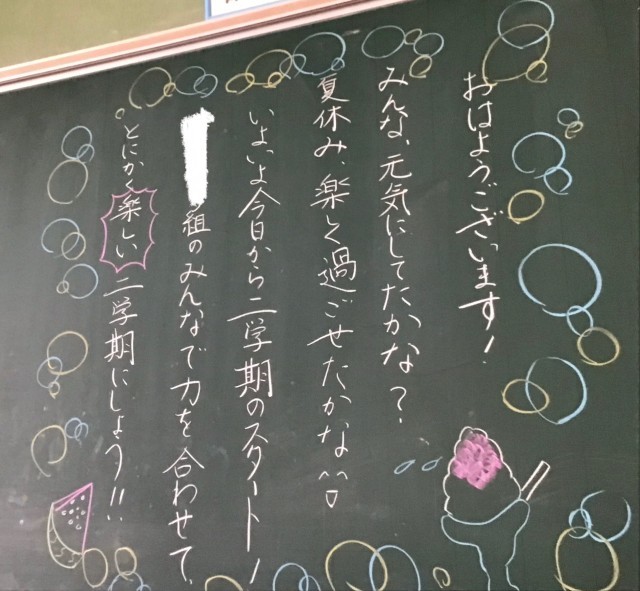 おはようございます!
みんな、元気にしてたかな?
夏休み、楽しく過ごせたかな^^
いよいよ今日から二学期のスタート!
組のみんなで力を合わせて、
とにかく楽しい二学期にしょう!!